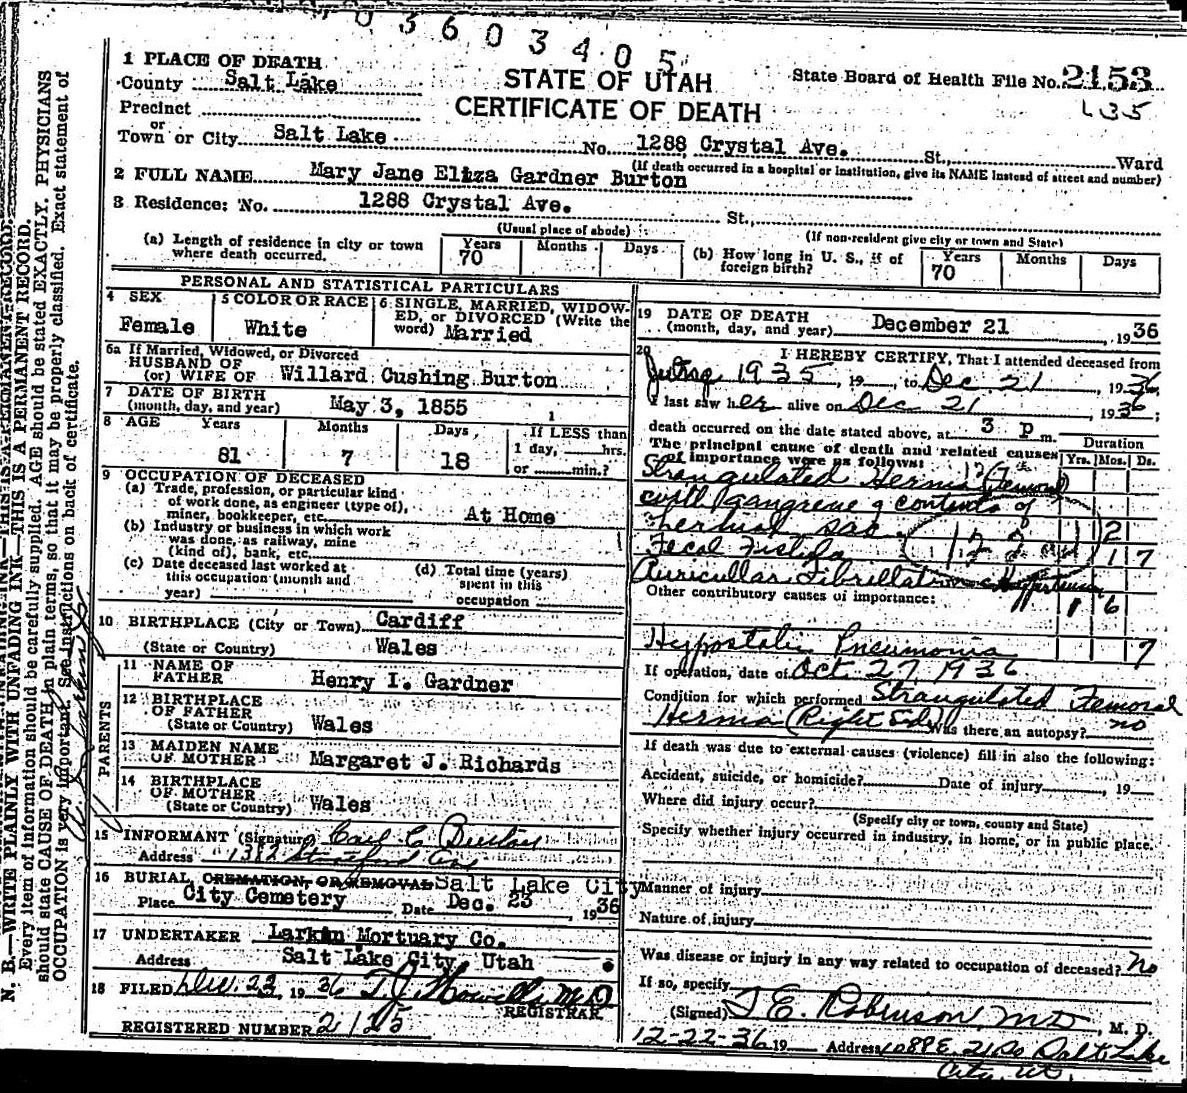 03603405
1 PLACE OF DEATH
County Salt Lake
STATE OF UTAH
State Board of Health File No. 2153
CERTIFICATE OF DEATH
135
Precinct
or
Town or City Salt Lake No. 1288 Crystal Ave. St., Ward
(If death occurred in a hospital or institution, give its NAME instead of street and number)
2 FULL NAME Mary Jane Eliza Gardner Burton
3 Residence: No. 1288 Crystal Ave. St.,
(Usual place of abode) (If non-resident give city or town and State)
(a) Length of residence in city or town where death occurred. Years 70 Months Days
(b) How long in U. S., if of foreign birth? Years 70 Months Days
PERSONAL AND STATISTICAL PARTICULARS
4 SEX Female
5 COLOR OR RACE White
6 SINGLE, MARRIED, WIDOWED, or DIVORCED (Write the word) Married
6a If Married, Widowed, or Divorced
HUSBAND OF
(or) WIFE OF Willard Cushing Burton
7 DATE OF BIRTH
(month, day, and year) May 3, 1855
8 AGE Years 81 Months 7 Days 18
If LESS than
1 day, hrs.
or min.?
9 OCCUPATION OF DECEASED
(a) Trade, profession, or particular kind
of work done, as engineer (type of),
miner, bookkeeper, etc. At Home
(b) Industry or business in which work
was done, as railway, mine
(kind of), bank, etc.
(c) Date deceased last worked at
this occupation (month and
year)
(d) Total time (years)
spent in this
occupation
10 BIRTHPLACE (City or Town) Cardiff
(State or Country) Wales
PARENTS
11 NAME OF
FATHER Henry I. Gardner
12 BIRTHPLACE
OF FATHER
(State or Country) Wales
13 MAIDEN NAME
OF MOTHER Margaret J. Richards
14 BIRTHPLACE
OF MOTHER
(State or Country) Wales
15 INFORMANT (Signature) Carl C Burton
Address 1382 Stratford
16 BURIAL CREMATION, OR REMOVAL Salt Lake City
Place City Cemetery Date Dec. 23, 1936
17 UNDERTAKER Larkin Mortuary Co.
Address Salt Lake City, Utah
18 FILED Dec. 23, 1936 T.J. Howells M.D.
REGISTRAR
REGISTERED NUMBER 2125
19 DATE OF DEATH
(month, day, and year) December 21, 1936
20 I HEREBY CERTIFY, That I attended deceased from
1935, 19 , to Dec 21, 1936
I last saw her alive on Dec 21, 1936;
death occurred on the date stated above, at 3 p m.
The principal cause of death and related causes
of importance were as follows:
Duration
Yrs. Mos. Ds.
Strangulated Hernia (Femoral)
with gangrene of contents of
hernial sac 2
Fecal Fistula 1 7
Auricular Fibrillation Hypertension
Other contributory causes of importance: 1 6
Hypostatic Pneumonia 7
If operation, date of Oct 27, 1936
Condition for which performed Strangulated Femoral
Hernia (Right Side) Was there an autopsy? no
If death was due to external causes (violence) fill in also the following:
Accident, suicide, or homicide? Date of injury , 19
Where did injury occur?
(Specify city or town, county and State)
Specify whether injury occurred in industry, in home, or in public place.
Manner of injury
Nature of injury
Was disease or injury in any way related to occupation of deceased? No
If so, specify
(Signed) T E. Robinson, MD , M. D.
12-22-36 19 Address 1088 E. 21 So Salt Lake
City, Ut.
N. B.—WRITE PLAINLY WITH UNFADING INK—THIS IS A PERMANENT RECORD.
Every item of information should be carefully supplied. AGE should be stated EXACTLY. PHYSICIANS
should state CAUSE OF DEATH in plain terms, so that it may be properly classified. Exact statement of
OCCUPATION is very important. See instructions on back of certificate.